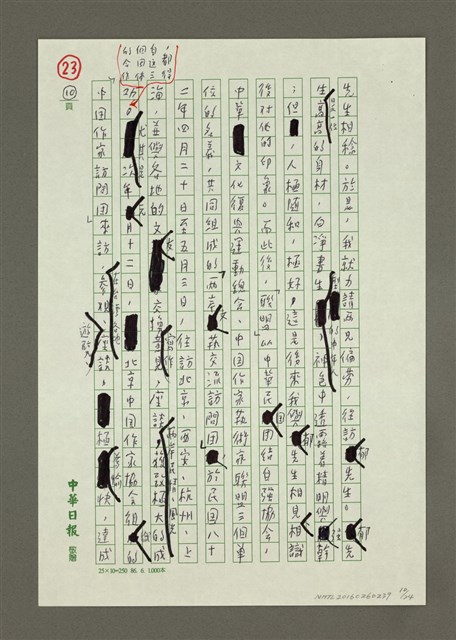 先生相稔。於是，我就力請西兄偏勞，往訪郁先生。郁先
生高高的身材，白淨書生型的中年人，神色中透露著精明強幹
；但，人極隨和，極好，這是後來我與郁先生相見相識
後對他的印象。而此後，「聯盟」以中華民國團結自強協會、
中華文化復興運動總會、中國作家藝術家聯盟三個單
位的名義，共同組成的「文藝交流訪問團」於民國八十
二年四月二十日至五月三日，往訪北京、西安、杭州、上
海，並與各地的文友交換意見，座談，獲致極大的成
功。尤其是次年元月十二日，北京中國作家協會組成的
「中國作家訪問團」來訪，參觀、座談、遊覽，極愉快，達成
都得
自這三
個團体
的合作
23
10
頁
中華日報
稿牋
25×10=250 86.6.1,000本
NMTL20160260239